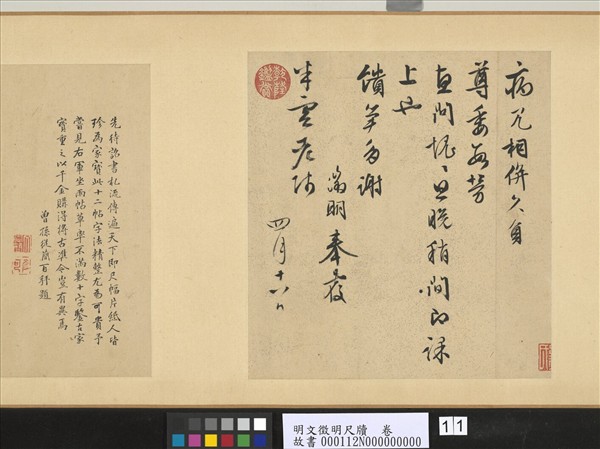 病冗相併久負
尊委每勞
垂問愧旦晚稍間即課
上也
饋笋多謝
徵明奉覆
半雲老師
四月十六日
乾隆鑑賞
先待詔書札流傳遍天下即尺幅片紙人皆
珍為家寶此十二帖字法精整尤為可貴予
嘗見右軍坐雨帖草率不滿數十字鑒古家
寶重之以千金購得得古準今豈有異焉
曾孫從簡百拜題
明文徵明尺牘 卷
故書 000112N000000000
11